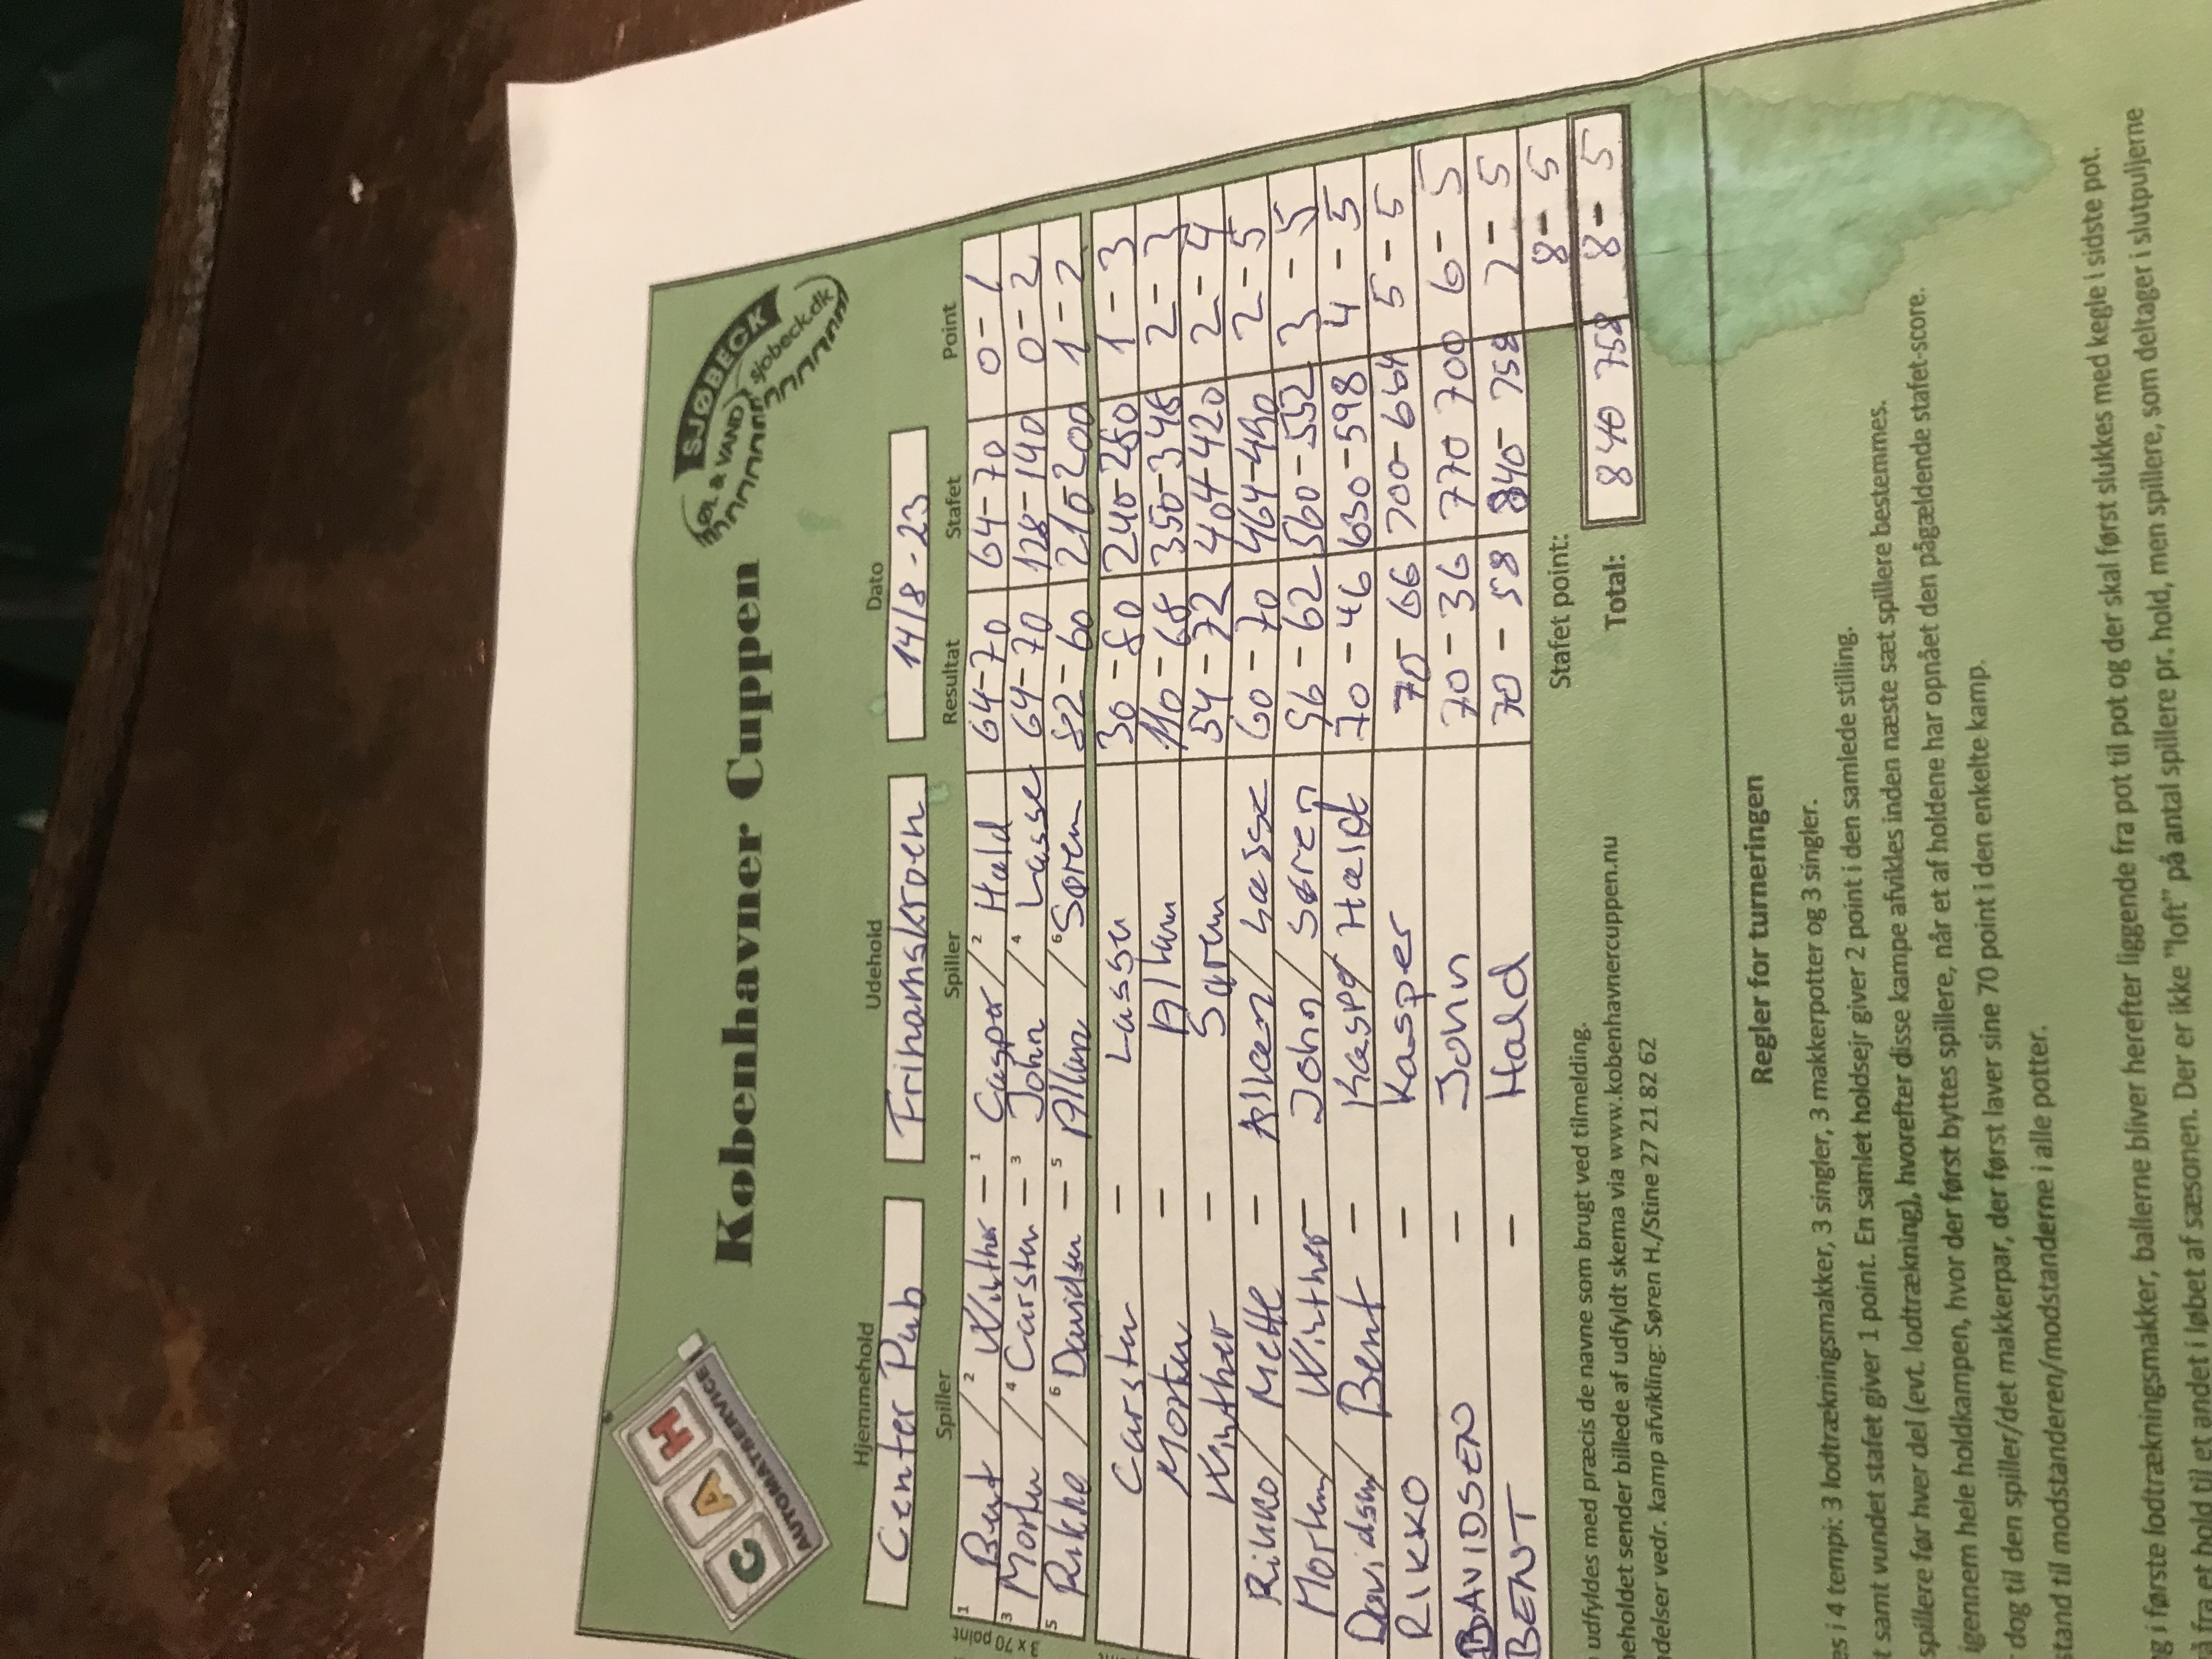 CAH
AUTOMATSERVICE
København Cuppen
SJØBECK
ØL & VAND
sjobeck.dk
Hjemmehold Udehold Dato
Center Pub Frihavnskroen 14/8-23
Spiller Spiller Resultat Stafet Point
1 Bent / 2 Winther - 1 Casper / 2 Hald 64-70 64-70 0-1
3 Morten / 4 Carsten - 3 John / 4 Lasse 64-70 128-140 0-2
5 Rikko / 6 Davidsen - 5 Allan / 6 Søren 82-60 210-200 1-2
3 x 70 point
Carsten - Lasse 30-80 240-280 1-3
Morten - Allan 110-68 350-348 2-3
Winther - Søren 54-72 404-420 2-4
Rikko / Mette - Allan / Lasse 60-70 464-490 2-5
Morten / Winther - John / Søren 96-62 560-552 3-5
Davidsen / Bent - Kasper Hald 70-46 630-598 4-5
RIKKO - Kasper 70-66 700-664 5-5
DAVIDSEN - John 70-36 770 700 6-5
BENT - Hald 70-58 840-758 7-5
Stafet point: 8-5
Total: 840 758 8-5
udfyldes med præcis de navne som brugt ved tilmelding.
eholdet sender billede af udfyldt skema via www.kobenhavnercuppen.nu
ndelser vedr. kamp afvikling: Søren H./Stine 27 21 82 62
Regler for turneringen
es i 4 tempi: 3 lodtrækningsmakker, 3 singler, 3 makkerpotter og 3 singler.
t samt vundet stafet giver 1 point. En samlet holdsejr giver 2 point i den samlede stilling.
spillere før hver del (evt. lodtrækning), hvorefter disse kampe afvikles inden næste sæt spillere bestemmes.
igennem hele holdkampen, hvor der først byttes spillere, når et af holdene har opnået den pågældende stafet-score.
dog til den spiller/det makkerpar, der først laver sine 70 point i den enkelte kamp.
stand til modstanderen/modstanderne i alle potter.
g i første lodtrækningsmakker, ballerne bliver herefter liggende fra pot til pot og der skal først slukkes med kegle i sidste pot.
å fra et hold til et andet i løbet af sæsonen. Der er ikke "loft" på antal spillere pr. hold, men spillere, som deltager i slutpuljerne